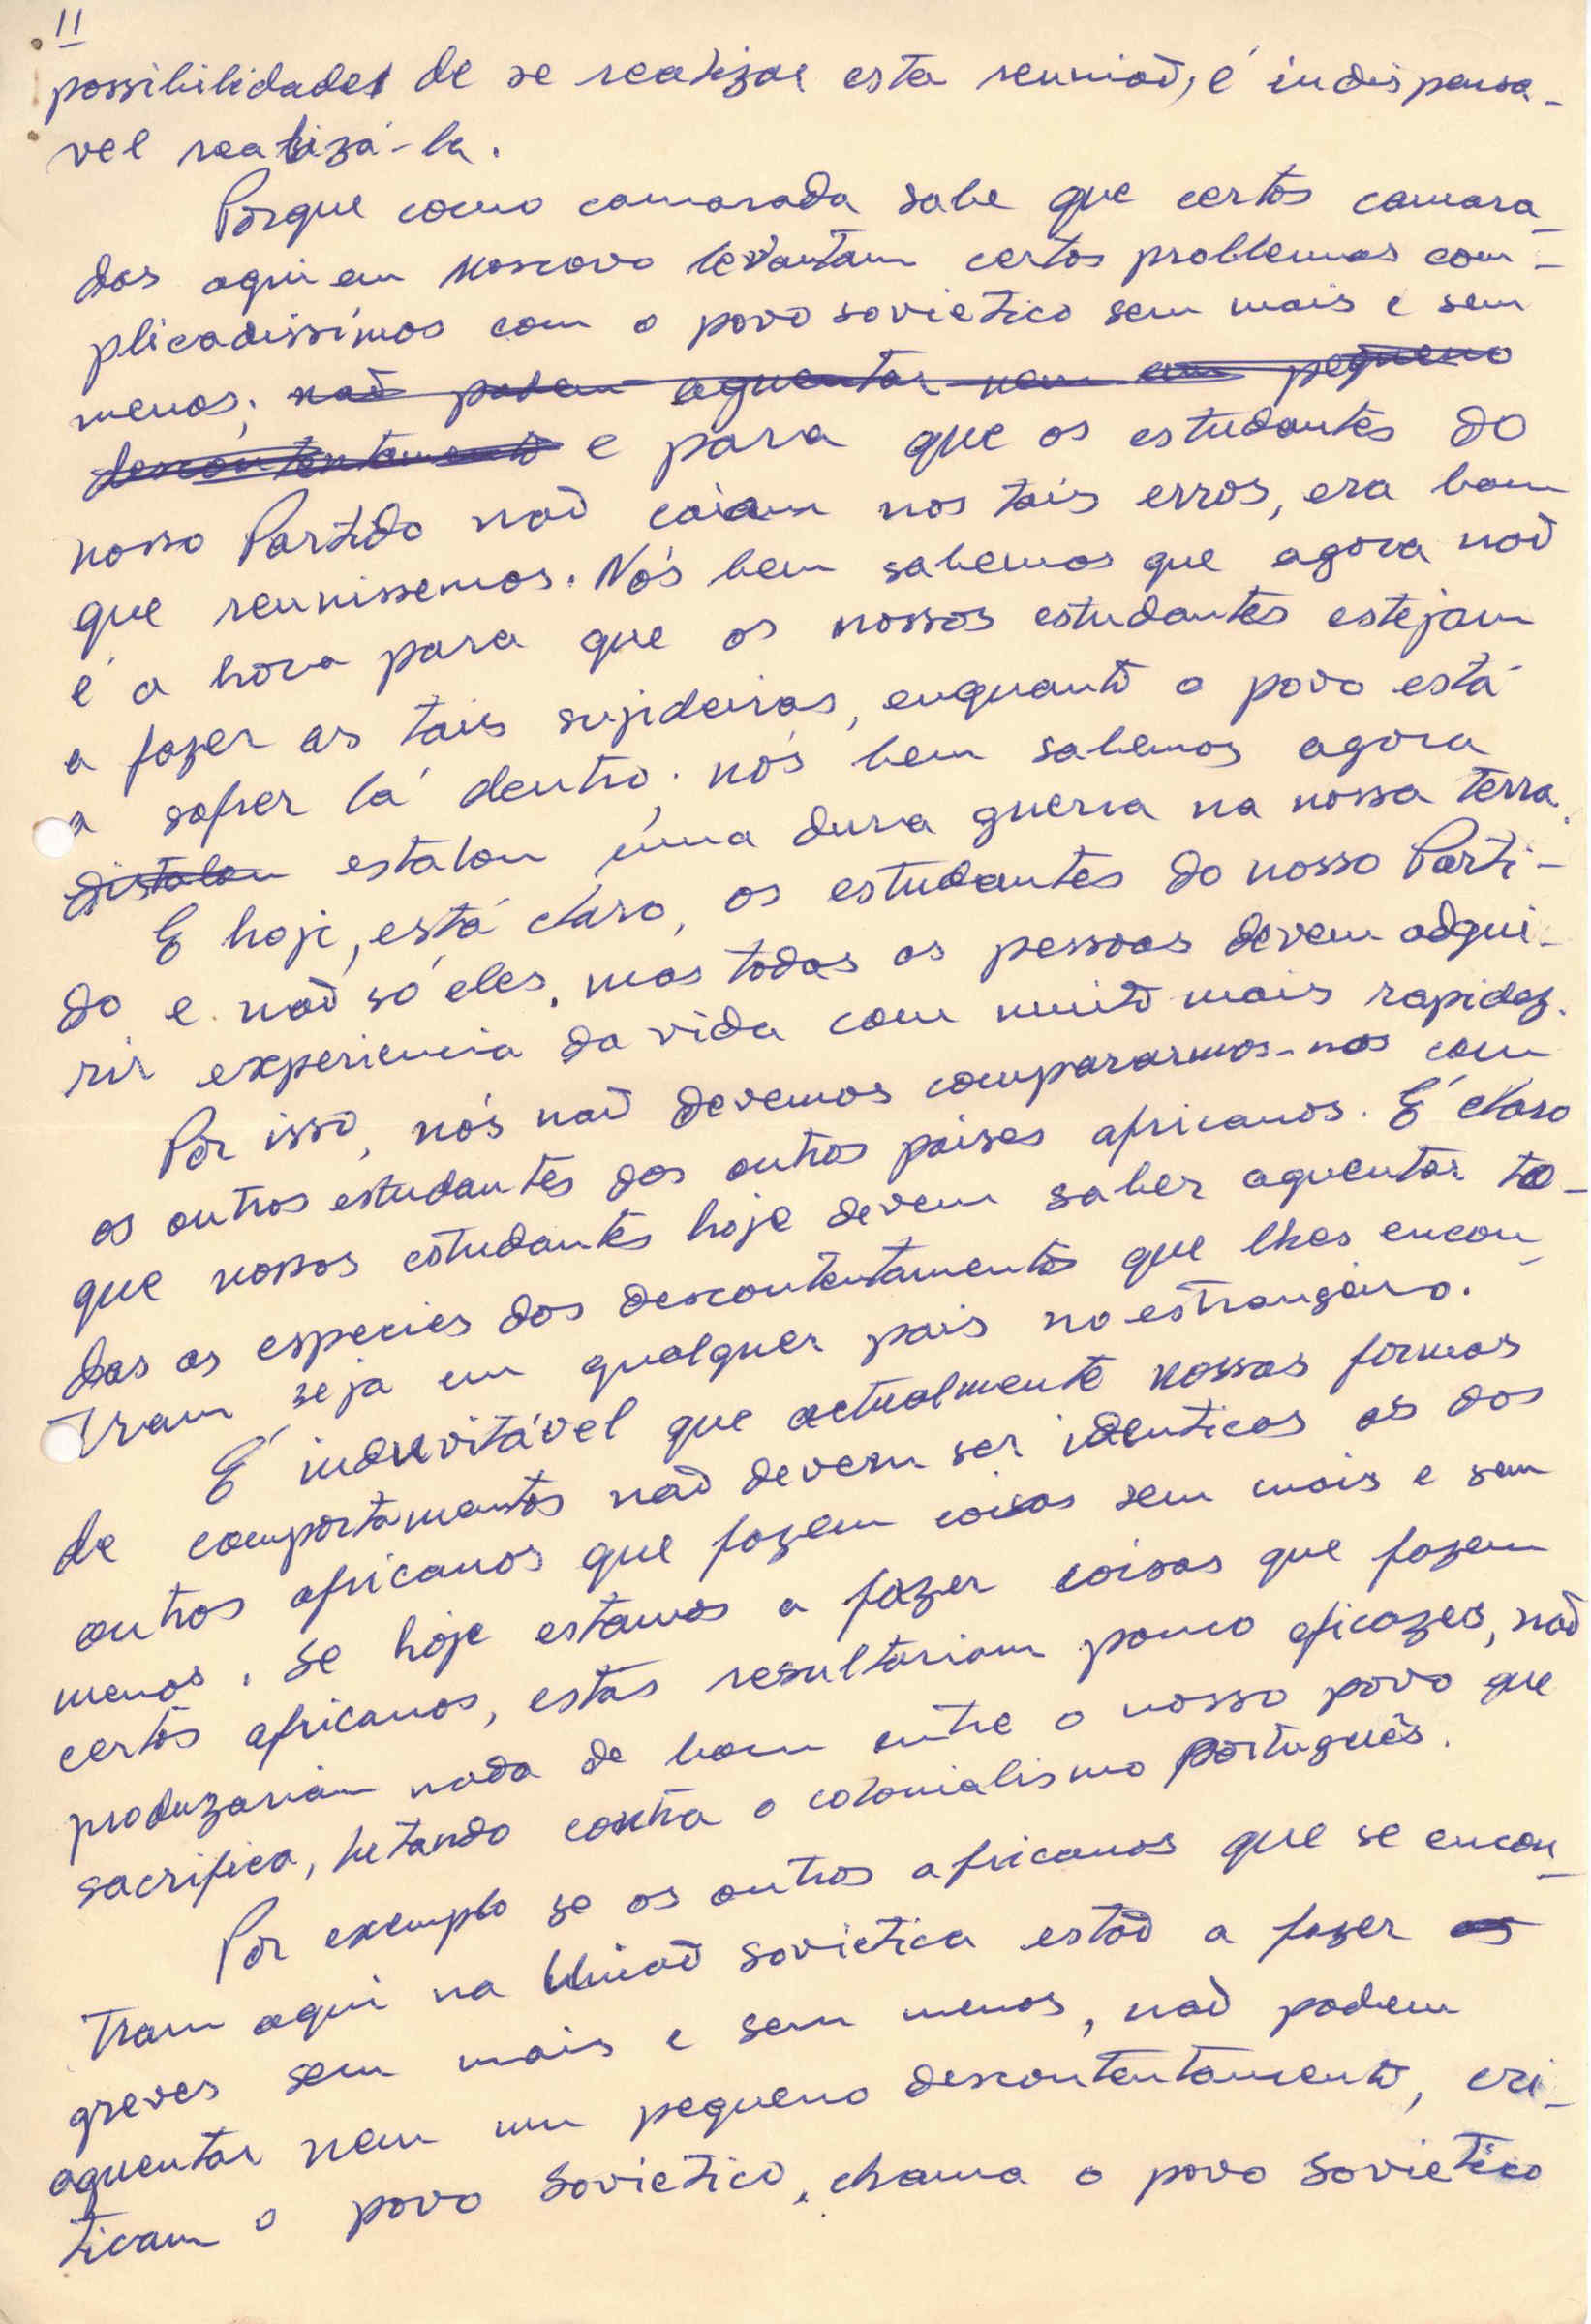 11
possibilidades de se realizar esta reunião, é indispensa-
vel realizá-la.
Porque como camarada sabe que certos camara-
das aqui em Moscovo levantam certos problemas com-
plicadissímos com o povo sovietico sem mais e sem
menos; não podem aguentar nem um pequeno
descontentamento e para que os estudantes do
nosso Partido não caiam nos tais erros, era bom
que reunissemos. Nós bem sabemos que agora não
é a hora para que os nossos estudantes estejam
a fazer as tais sujideiras, enquanto o povo está
a sofrer lá dentro; nós bem sabemos agora
distalou estalou uma dura guerra na nossa terra.
E hoje, está claro, os estudantes do nosso Parti-
do e não só eles, mas todas as pessoas devem adqui-
rir experiencia da vida com muito mais rapidez.
Por isso, nós não devemos compararmos-nos com
os outros estudantes dos outros paises africanos. É claro
que nossos estudantes hoje devem saber aguentar to-
das as especies dos descontentamentos que lhes encon-
tram seja em qualquer pais no estrangeiro.
É induvitável que actualmente nossas formas
de comportamentos não devem ser identicas as dos
outros africanos que fazem coisas sem mais e sem
menos. Se hoje estamos a fazer coisas que fazem
certos africanos, estas resultariam pouco eficazes, não
produzariam nada de bom entre o nosso povo que
sacrifica, lutando contra o colonialismo português.
Por exemplo se os outros africanos que se encon-
tram aqui na União Sovietica estão a fazer as
greves sem mais e sem menos, não podem
aguentar nem um pequeno descontentamento, cri-
ticam o povo Sovietico, chama o povo Sovietico